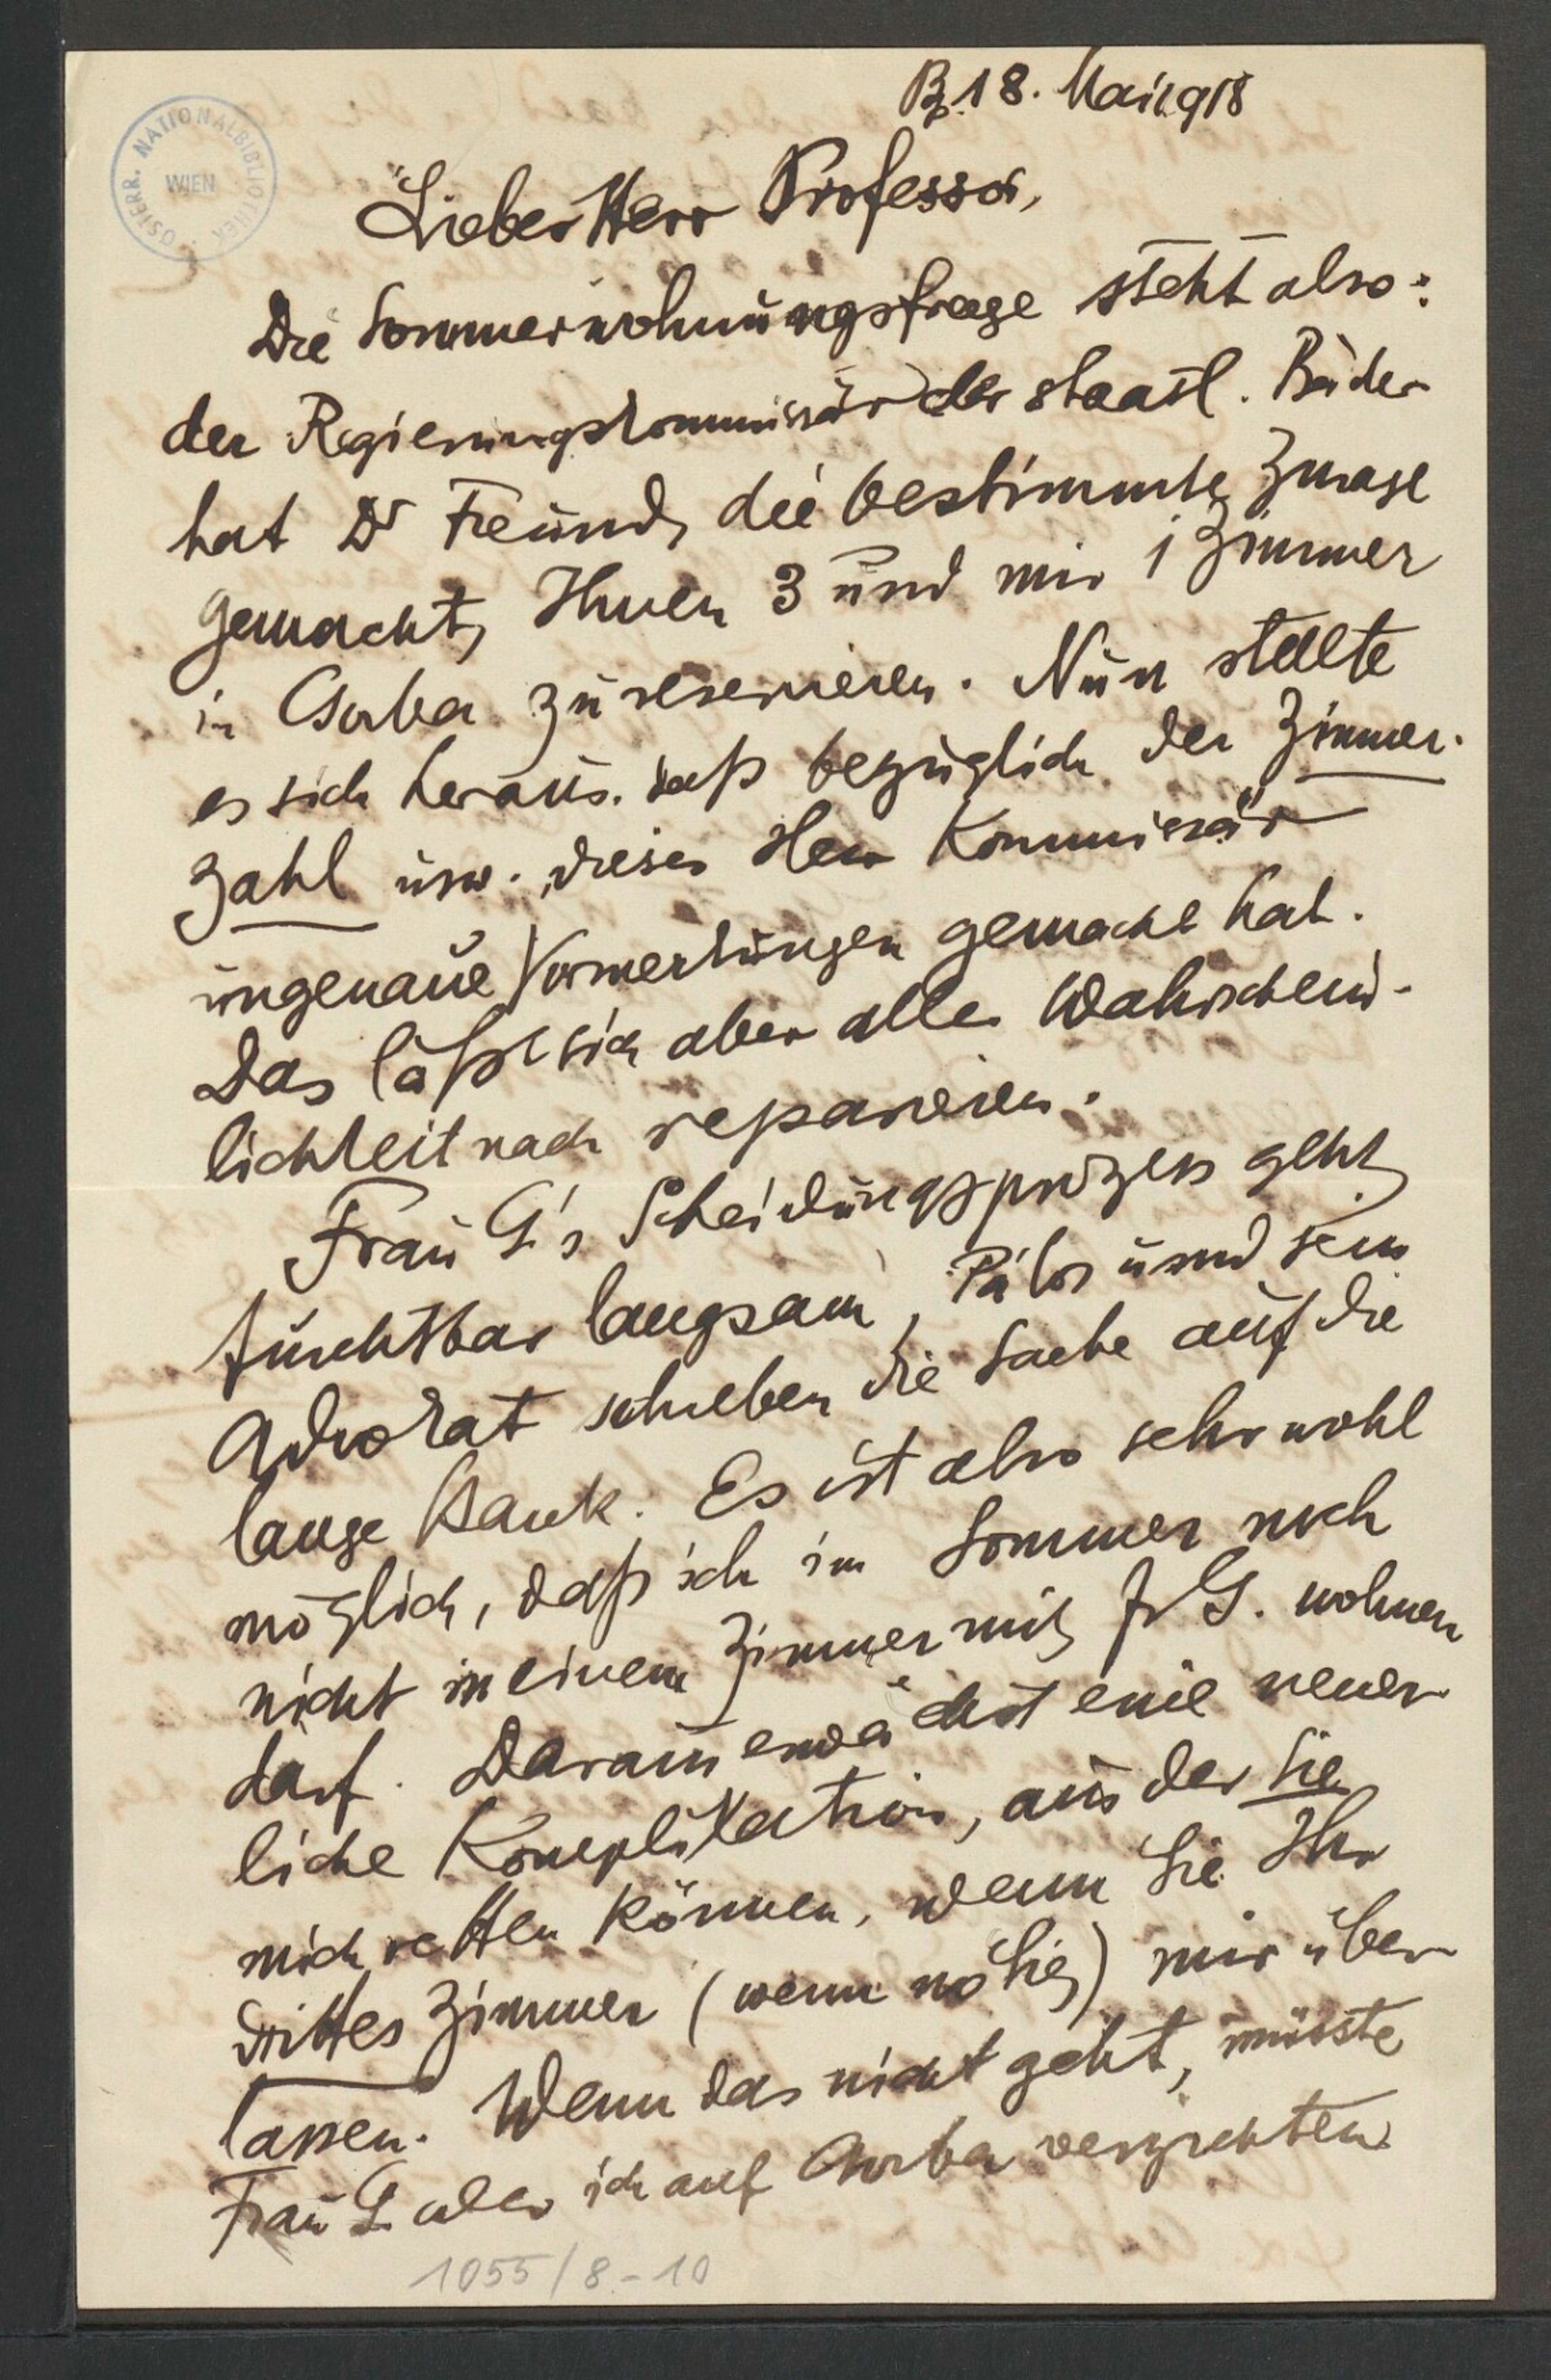 ÖSTERR. NATIONALBIBLIOTHEK
WIEN
Bp. 18. Mai 1918
Lieber Herr Professor,
Die Sommerwohnungsfrage steht also:
der Regierungskommissär der staatl. Bäder
hat Dr Freund, die bestimmte Zusage
gemacht, Ihnen 3 und mir 1 Zimmer
in Csorba zu reservieren. Nun stellte
es sich heraus, daß bezüglich der Zimmer-
zahl usw. dieser Herr Kommissär
ungenaue Vormerkungen gemacht hat.
Das läßt sich aber aller Wahrschein-
lichkeit nach reparieren.
Frau G's Scheidungsprozess geht
furchtbar langsam, Pálos und sein
Advokat schieben die Sache auf die
lange Bank. Es ist also sehr wohl
möglich, daß ich im Sommer noch
nicht in einem Zimmer mit Fr G. wohnen
darf. Daraus erwächst eine neuer-
liche Komplikation, aus der Sie
mich retten können, wenn Sie Ihr
drittes Zimmer (wenn nötig) mir über-
lassen. Wenn das nicht geht, müsste
Frau G. oder ich auf Csorba verzichten.
1055/8-10